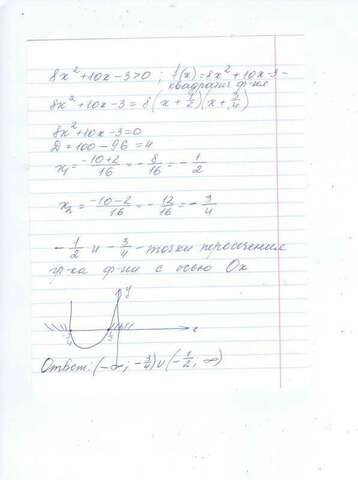 8x²+10x-3>0; f(x)=8x²+10x-3-
квадрат. ф-ия
8x²+10x-3=8(x+1/2)(x+3/4)
8x²+10x-3=0
D=100-96=4
x₁=(-10+2)/16=-8/16=-1/2
x₂=(-10-2)/16=-12/16=-3/4
-1/2 и -3/4-точки пересечения
гр-ка ф-ии с осью Ox
y
x
Ответ:(-∞;-3/4)∪(-1/2;∞)